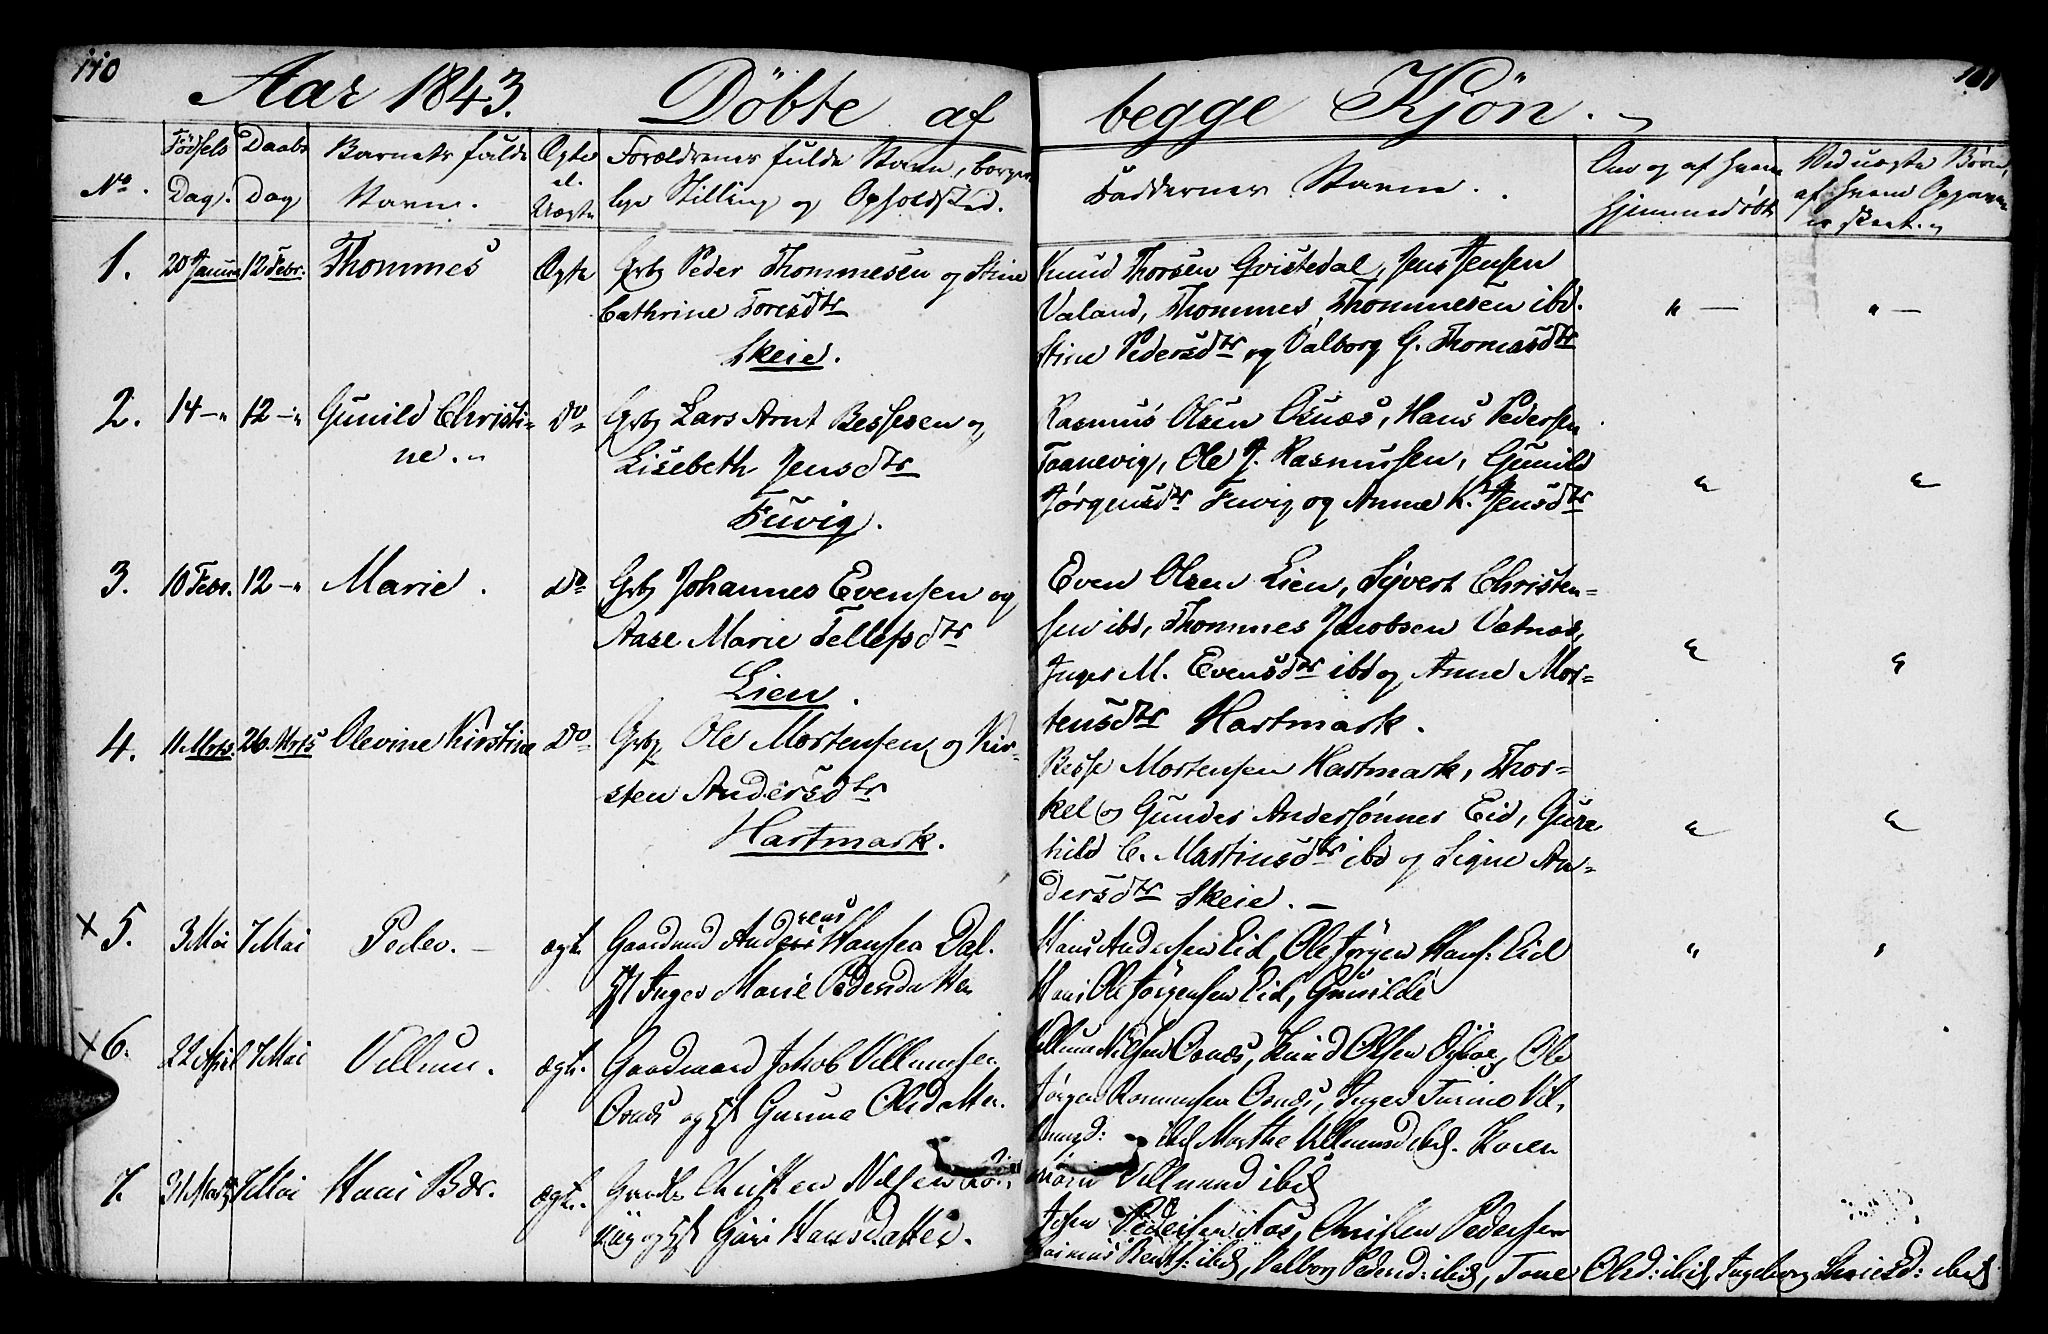 110
Aar 1843. Døbte af begge Kjøn.
No. Fødsels Dag. Daabs Dag Barnets fulde Navn. Ægte el. Uægte Forældrenes fulde Navn, borgerlige Stilling og Opholdsted.
Faddernes Navne. Om og af hvem hjemmedøbt Ved uægte Børn, af hvem Opgaven er skeet.
1. 20 Januar 12 Febr. Thommes Ægte Grbr Peder Thommesen og Stine
Cathrine Toresdtr
Skeie.
Knud Thorsen Qvistedal, Jens Jensen
Valand, Thommes Thommesen ibd.
Stine Pedersdtr og Valborg G. Thomasdtr
2. 14 —" 12 —" Gunild Christi-
ne. Do Grbr Lars Arnt Bessesen og
Lisebeth Jensdtr
Fuvig.
Rasmus Olsen Osnæs, Hans Pedersen
Taanevig, Ole J. Rasmussen, Gunild
Jørgensdtr Fuvig og Anne K. Jensdtr
3. 10 Febr. 12 —" Marie. Do Grbr Johannes Evensen og
Aase Marie Tellefsdtr
Lien.
Even Olsen Lien, Syvert Christen-
sen ibd, Thommes Jacobsen Vatnæs,
Inger M. Evensdtr ibd og Anne Mor-
tensdtr Hartmark.
4. 11 Mrts. 26 Mrts Olevine Kirstine Do Grbr Ole Mortensen og Kir-
sten Andersdtr
Hartmark.
Besse Mortensen Hartmark, Thor-
kel og Gunder Andersønner Eid, Gun
hild C. Martinsdtr ibd og Signe An-
dersdtr Skeie. —
× 5. 3 Mai 7 Mai Peder. — ægt. Gaardmd Andreas Hansen
Inger Marie Pedersdatter
Hans Andersen Eid, Ole Jørgen Hans: Eid
Hans Ole Jørgensen Eid, Gunilde
× 6. 22 April 7 Mai Villum. ægt. Gaardmand Jakob Villumsen
Osnæs og Gunne Olsdatter.
Villum Nilsen Osnæs, Knud Olsen, Ole
Jørgen Rasmussen Osnæs, Inger Vil-
lumsd: ibd Marthe Villumsd ibd. Karen
Villumsd ibd
7. 31 Marts 7 Mai Hans Bær. ægt. Christen Nilsen
Hansdatter.
Pedersen Aas, Christen Pedersen
Rasmus ibd, Valborg Pedersd: ibd, Tone Olsd: ibd, Ingeborg ibd